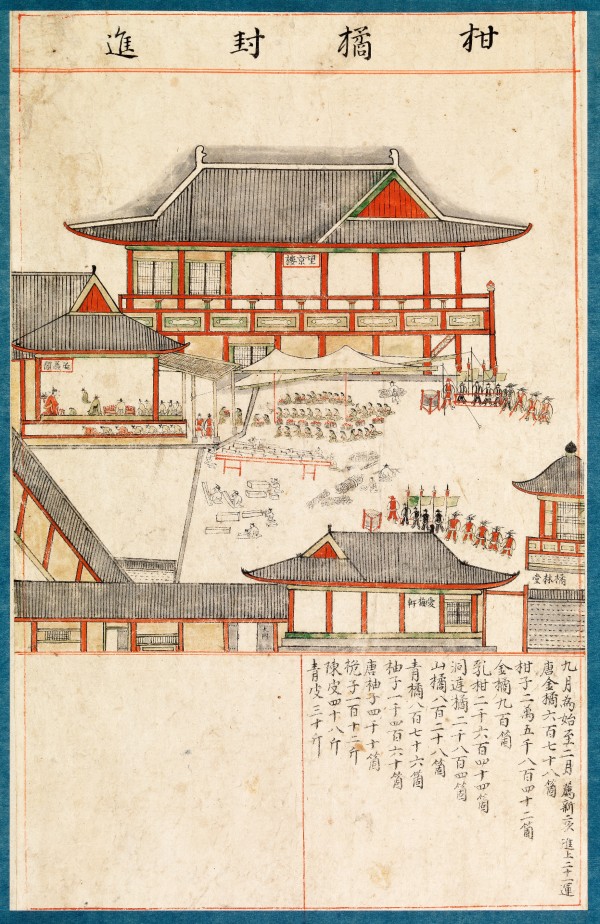 柑橘封進
望京樓
延曦閣
愛梅軒
橘林堂
九月為始至二月 薦新二次 進上二十一運
唐金橘六百七十八箇
柑子二萬五千八百四十二箇
金橘九百箇
乳柑二千六百四十四箇
洞庭橘二千八百四箇
山橘八百二十八箇
青橘八百七十六箇
柚子一千四百六十箇
唐柚子四千十箇
梔子一百十二斤
陳皮四十八斤
青皮三十斤